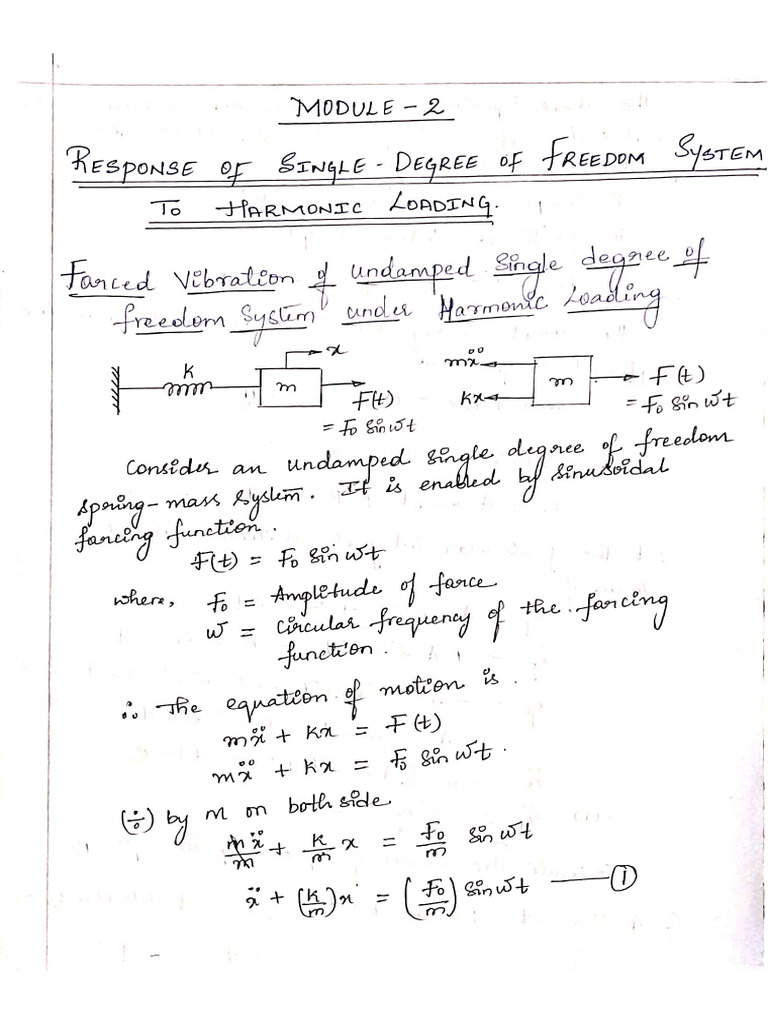 MODULE - 2
RESPONSE OF SINGLE-DEGREE OF FREEDOM SYSTEM
TO HARMONIC LOADING.
Farced Vibration of undamped Single degree of
freedom System under Harmonic Loading
k
m
x
F(t)
= F₀ sin ω̄t
mẍ
kx
m
F(t)
= F₀ sin ω̄t
Consider an undamped single degree of freedom
spring-mass system. It is enabled by sinusoidal
farcing function.
F(t) = F₀ sin ω̄t
where, F₀ = Amplitude of farce
ω̄ = Circular frequency of the farcing
function.
∴ The equation of motion is.
mẍ + kx = F(t)
mẍ + kx = F₀ sin ω̄t.
(÷) by m on both side
mẍ/m + k/m x = F₀/m sin ω̄t
ẍ + (k/m)x = (F₀/m) sin ω̄t —— ①